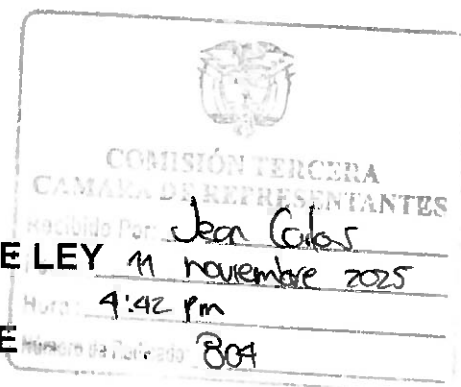 COMISIÓN TERCERA
CAMARA DE REPRESENTANTES
Recibido Por: Jean Carlos
E LEY 11 noviembre 2025
Hora: 4:42 Pm
E Número de Radicado: 804